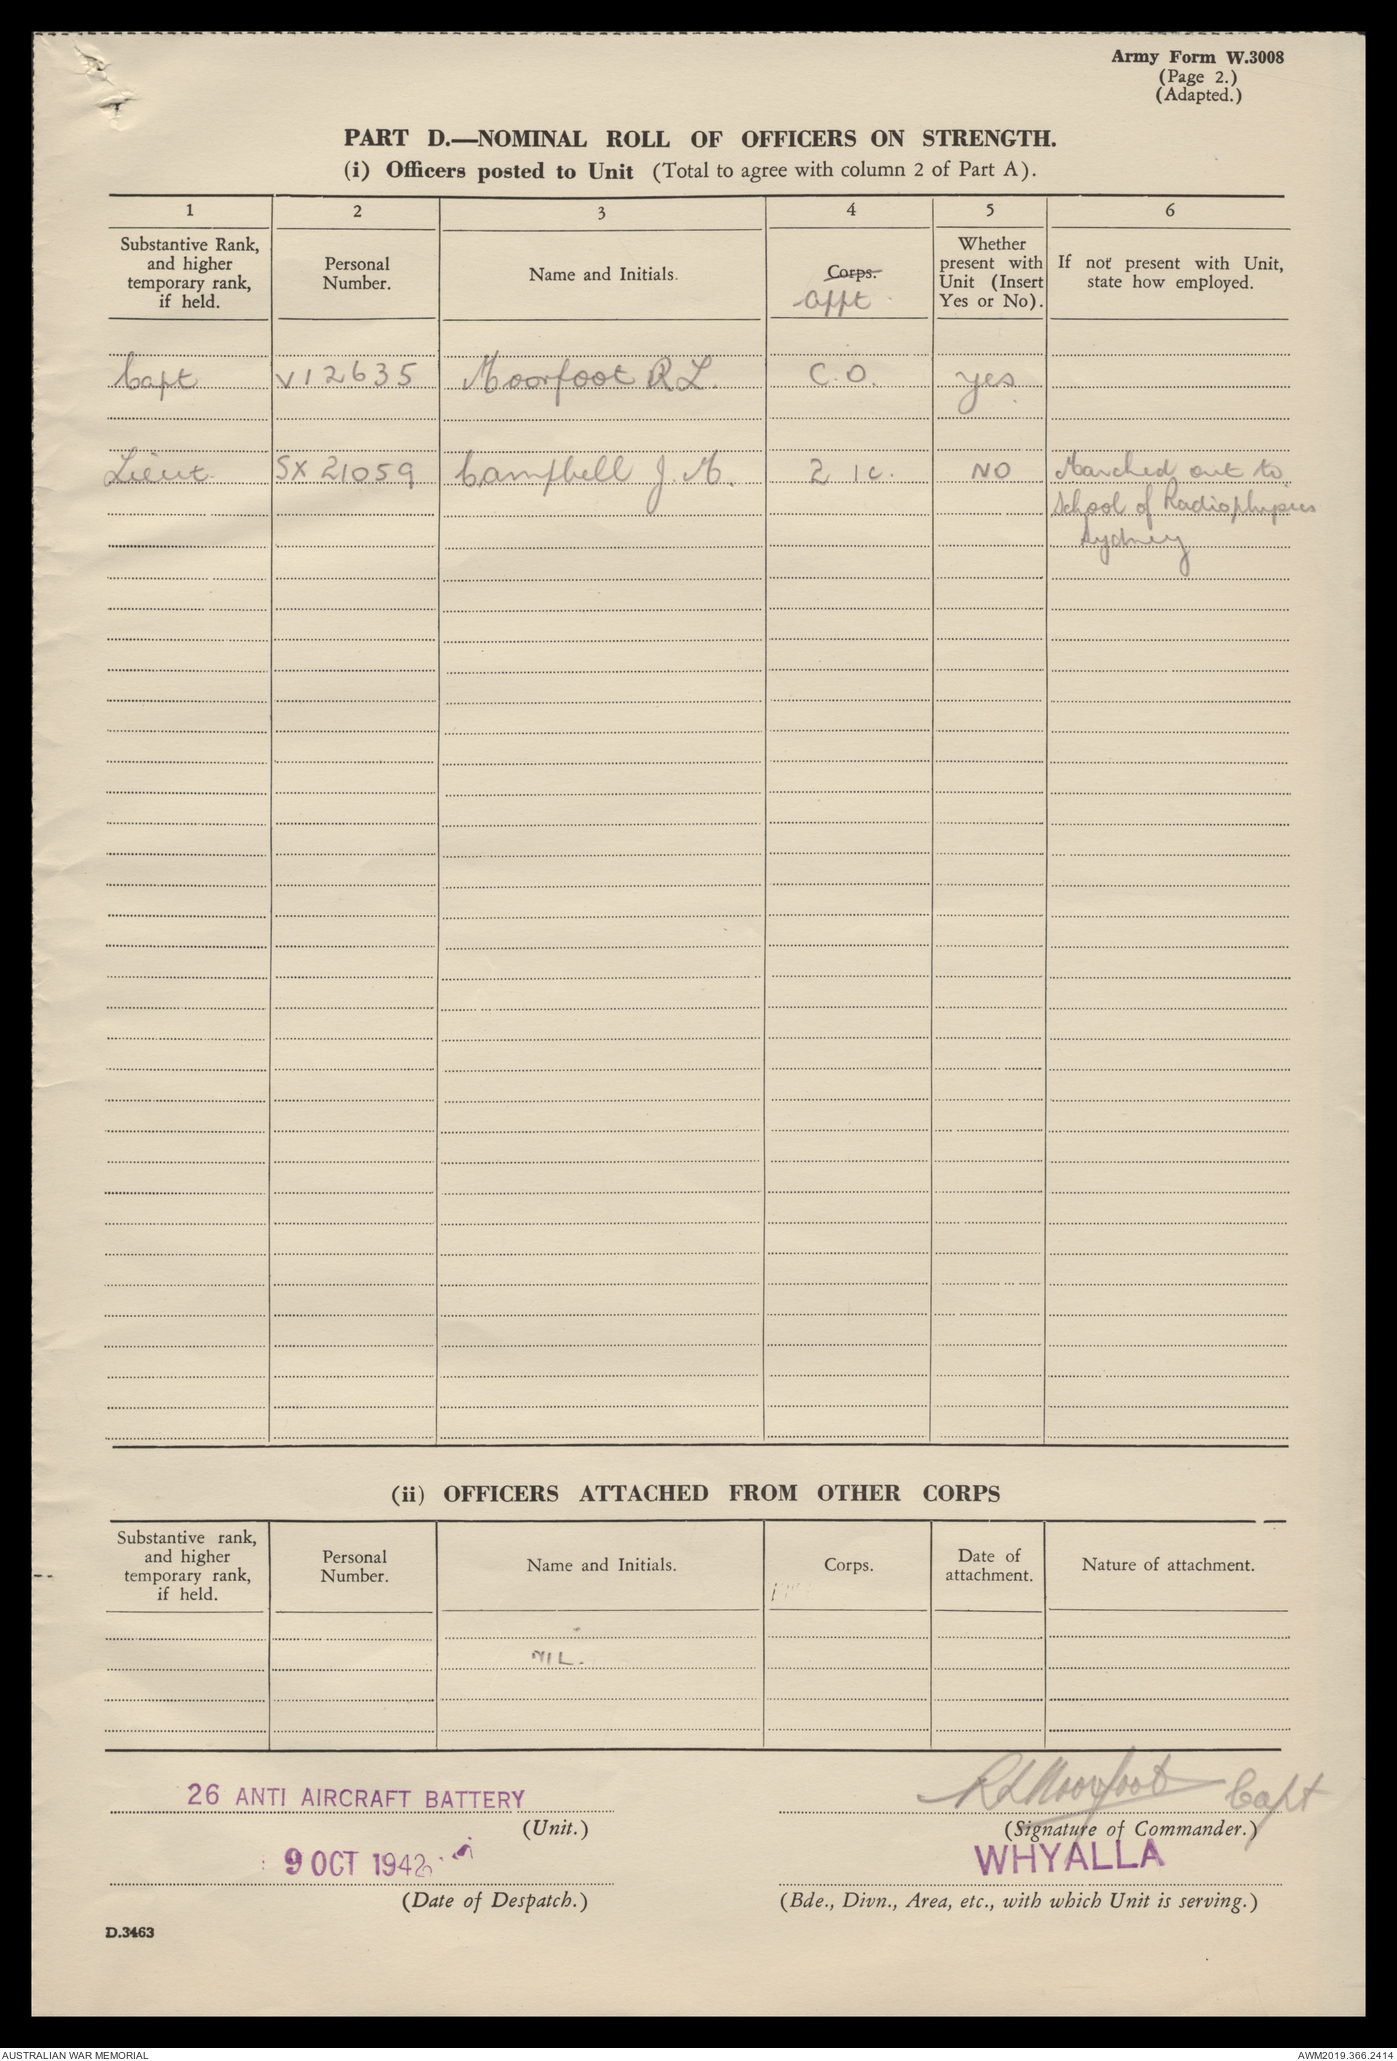 Army Form W.3008
(Page 2.)
(Adapted.)
PART D.—NOMINAL ROLL OF OFFICERS ON STRENGTH.
(i) Officers posted to Unit (Total to agree with column 2 of Part A).
1 2 3 4 5 6
Substantive Rank,
and higher
temporary rank,
if held.
Personal
Number.
Name and Initials.
Corps.
Appt
Whether
present with
Unit (Insert
Yes or No).
If not present with Unit,
state how employed.
Capt V12635 Moorfoot R L. C.O. yes
Lieut. SX 21059 Campbell J. M. 2 1c. NO Marched out to
School of Radiophysics
Sydney
(ii) OFFICERS ATTACHED FROM OTHER CORPS
Substantive rank,
and higher
temporary rank,
if held.
Personal
Number.
Name and Initials.
Corps.
Date of
attachment.
Nature of attachment.
NIL.
26 ANTI AIRCRAFT BATTERY
(Unit.)
RL Moorfoot Capt
(Signature of Commander.)
9 OCT 1942
(Date of Despatch.)
WHYALLA
(Bde., Divn., Area, etc., with which Unit is serving.)
D.3463
AUSTRALIAN WAR MEMORIAL
AWM2019.366.2414